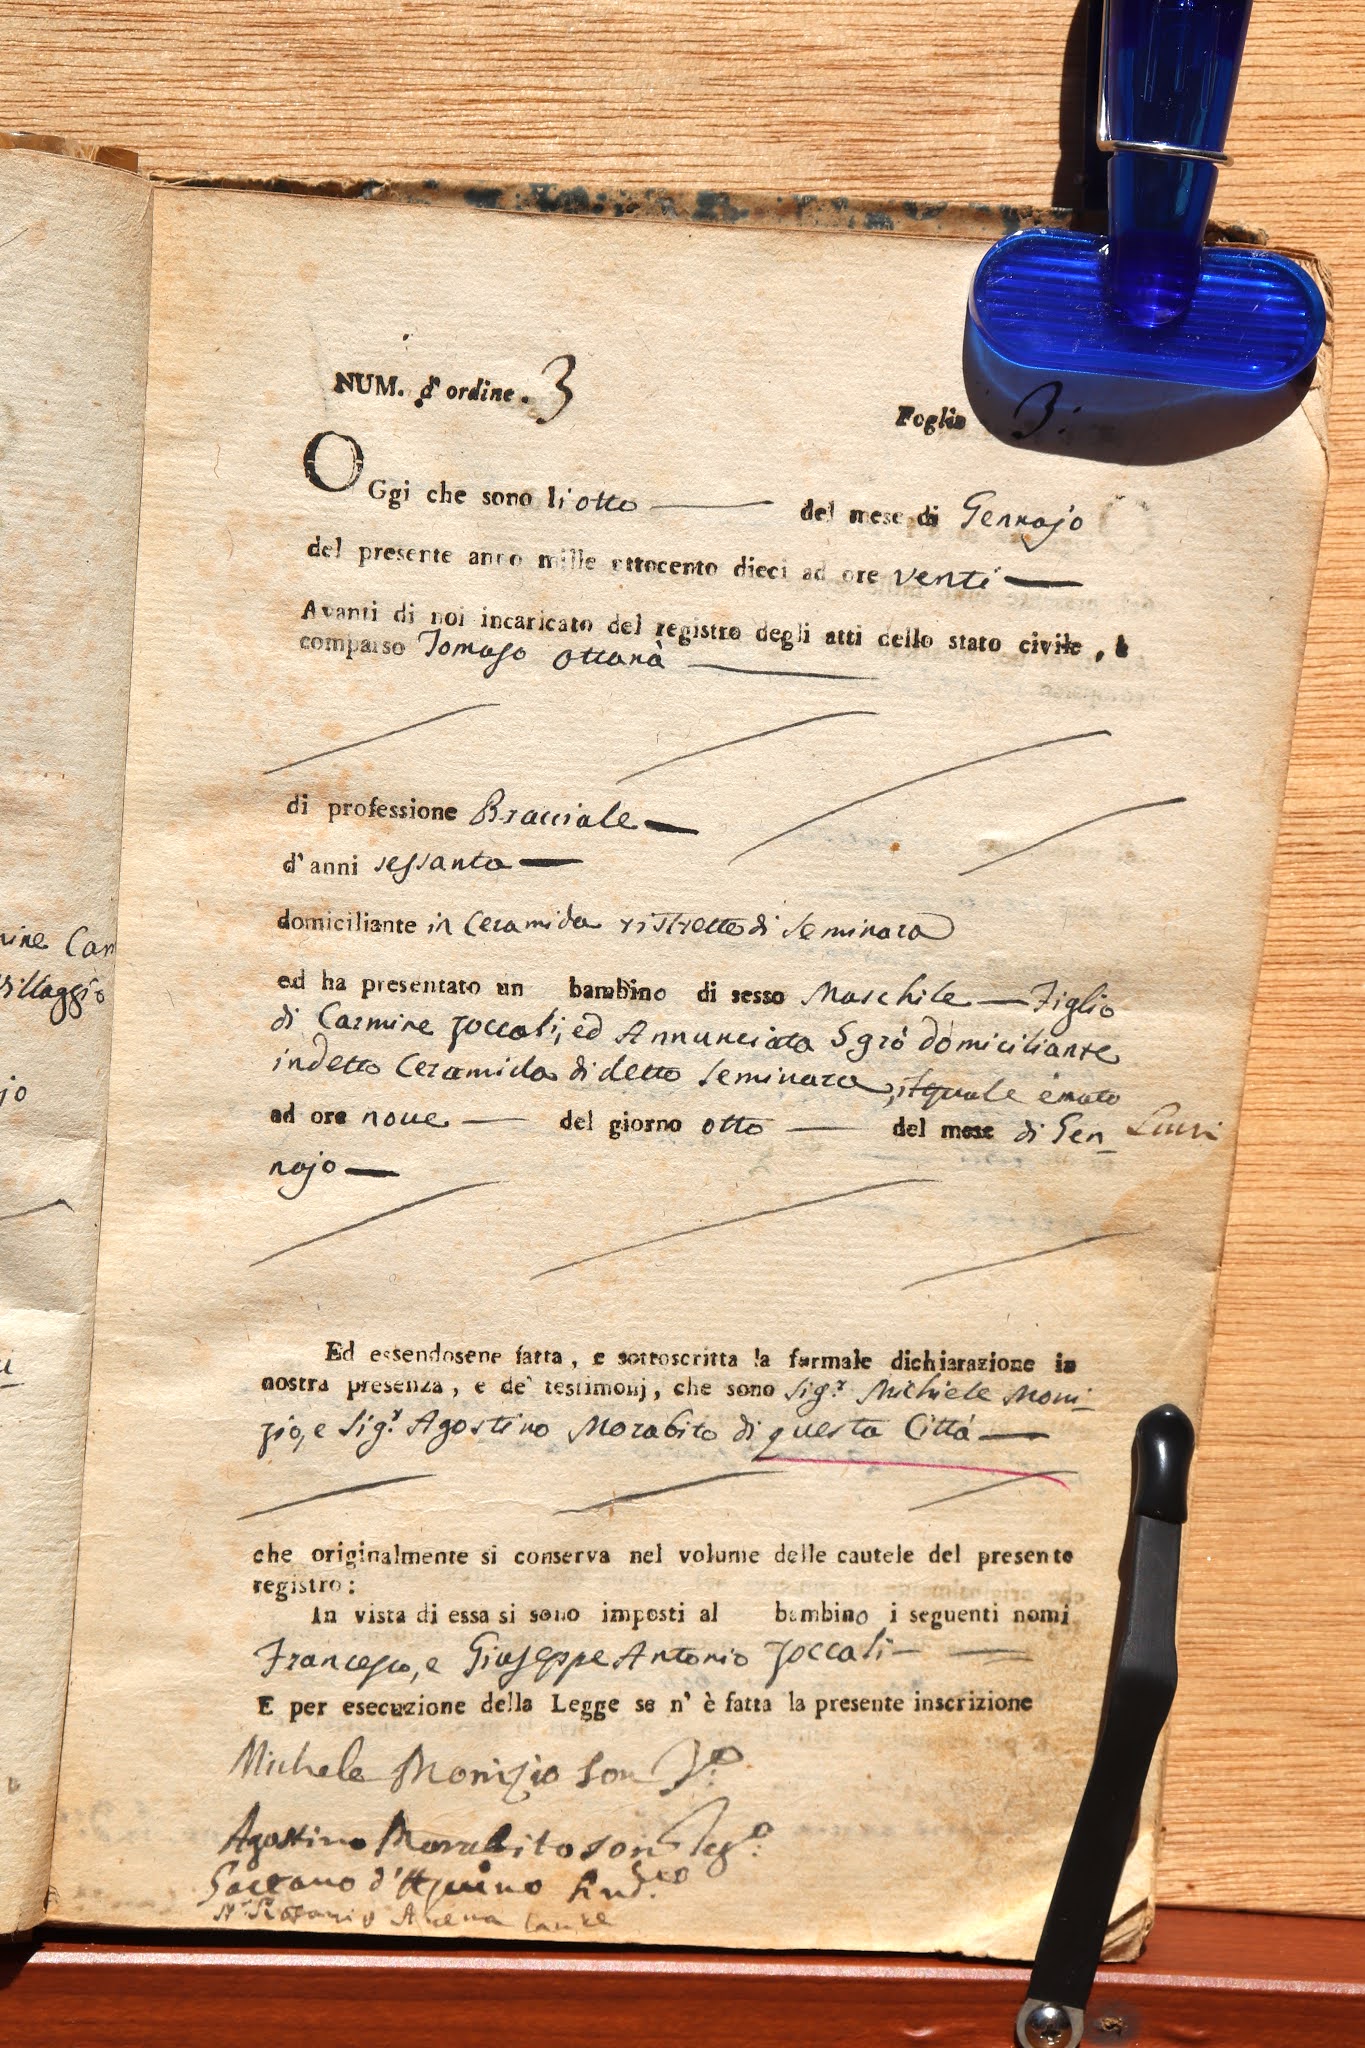 NUM. d'ordine. 3
Foglio 3.
OGgi che sono li otto del mese di Gennajo
del presente anno mille ottocento dieci ad ore venti
Avanti di noi incaricato del registro degli atti dello stato civile, è
comparso Tomaso Ottanà
di professione Bracciale
d'anni sessanta
domiciliante in Ceramida ristretto di Seminara
ed ha presentato un bambino di sesso Maschile Figlio
di Carmine Zoccali, ed Annunciata Sgrò domiciliante
in detto Ceramida di detto Seminara, il quale è nato
ad ore nove del giorno otto del mese di Gen-
najo
Ed essendosene fatta, e sottoscritta la formale dichiarazione in
nostra presenza, e de' testimonj, che sono Sig.r Michiele Moni-
zio, e Sig.r Agostino Morabito di questa Città
che originalmente si conserva nel volume delle cautele del presente
registro:
In vista di essa si sono imposti al bambino i seguenti nomi
Francesco, e Giuseppe Antonio Zoccali
E per esecuzione della Legge se n' è fatta la presente inscrizione
Michele Monizio son T.o
Agostino Morabito son Teg.o
Gaetano d'Aquino Sind.co
Arena Canc.re
nine Can
villaggio
jo